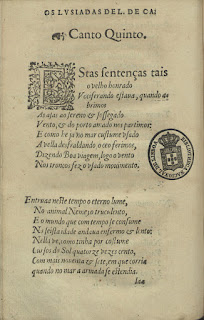 OS LVSIADAS DE L. DE CA.
Canto Quinto.
EStas sentenças tais
o velho honrado
Vociferando estaua, quando a-
brimos
As asas ao sereno & sossegado
Vento, & do porto amado nos partimos:
E como he ja no mar custume vsado
A vella desfraldando o ceo ferimos,
Dizendo Boa viagem, logo o vento
Nos troncos fez o vsado mouimento.
Entraua neste tempo o eterno lume,
No animal Nemeyo truculento,
E o mundo que com tempo se consume
Na seista idade andaua enfermo & lento:
Nella ve, como tinha por custume
Cursos do Sol quatorze vezes cento,
Com mais nouenta & sete, em que corria
quando no mar a armada se estendia.